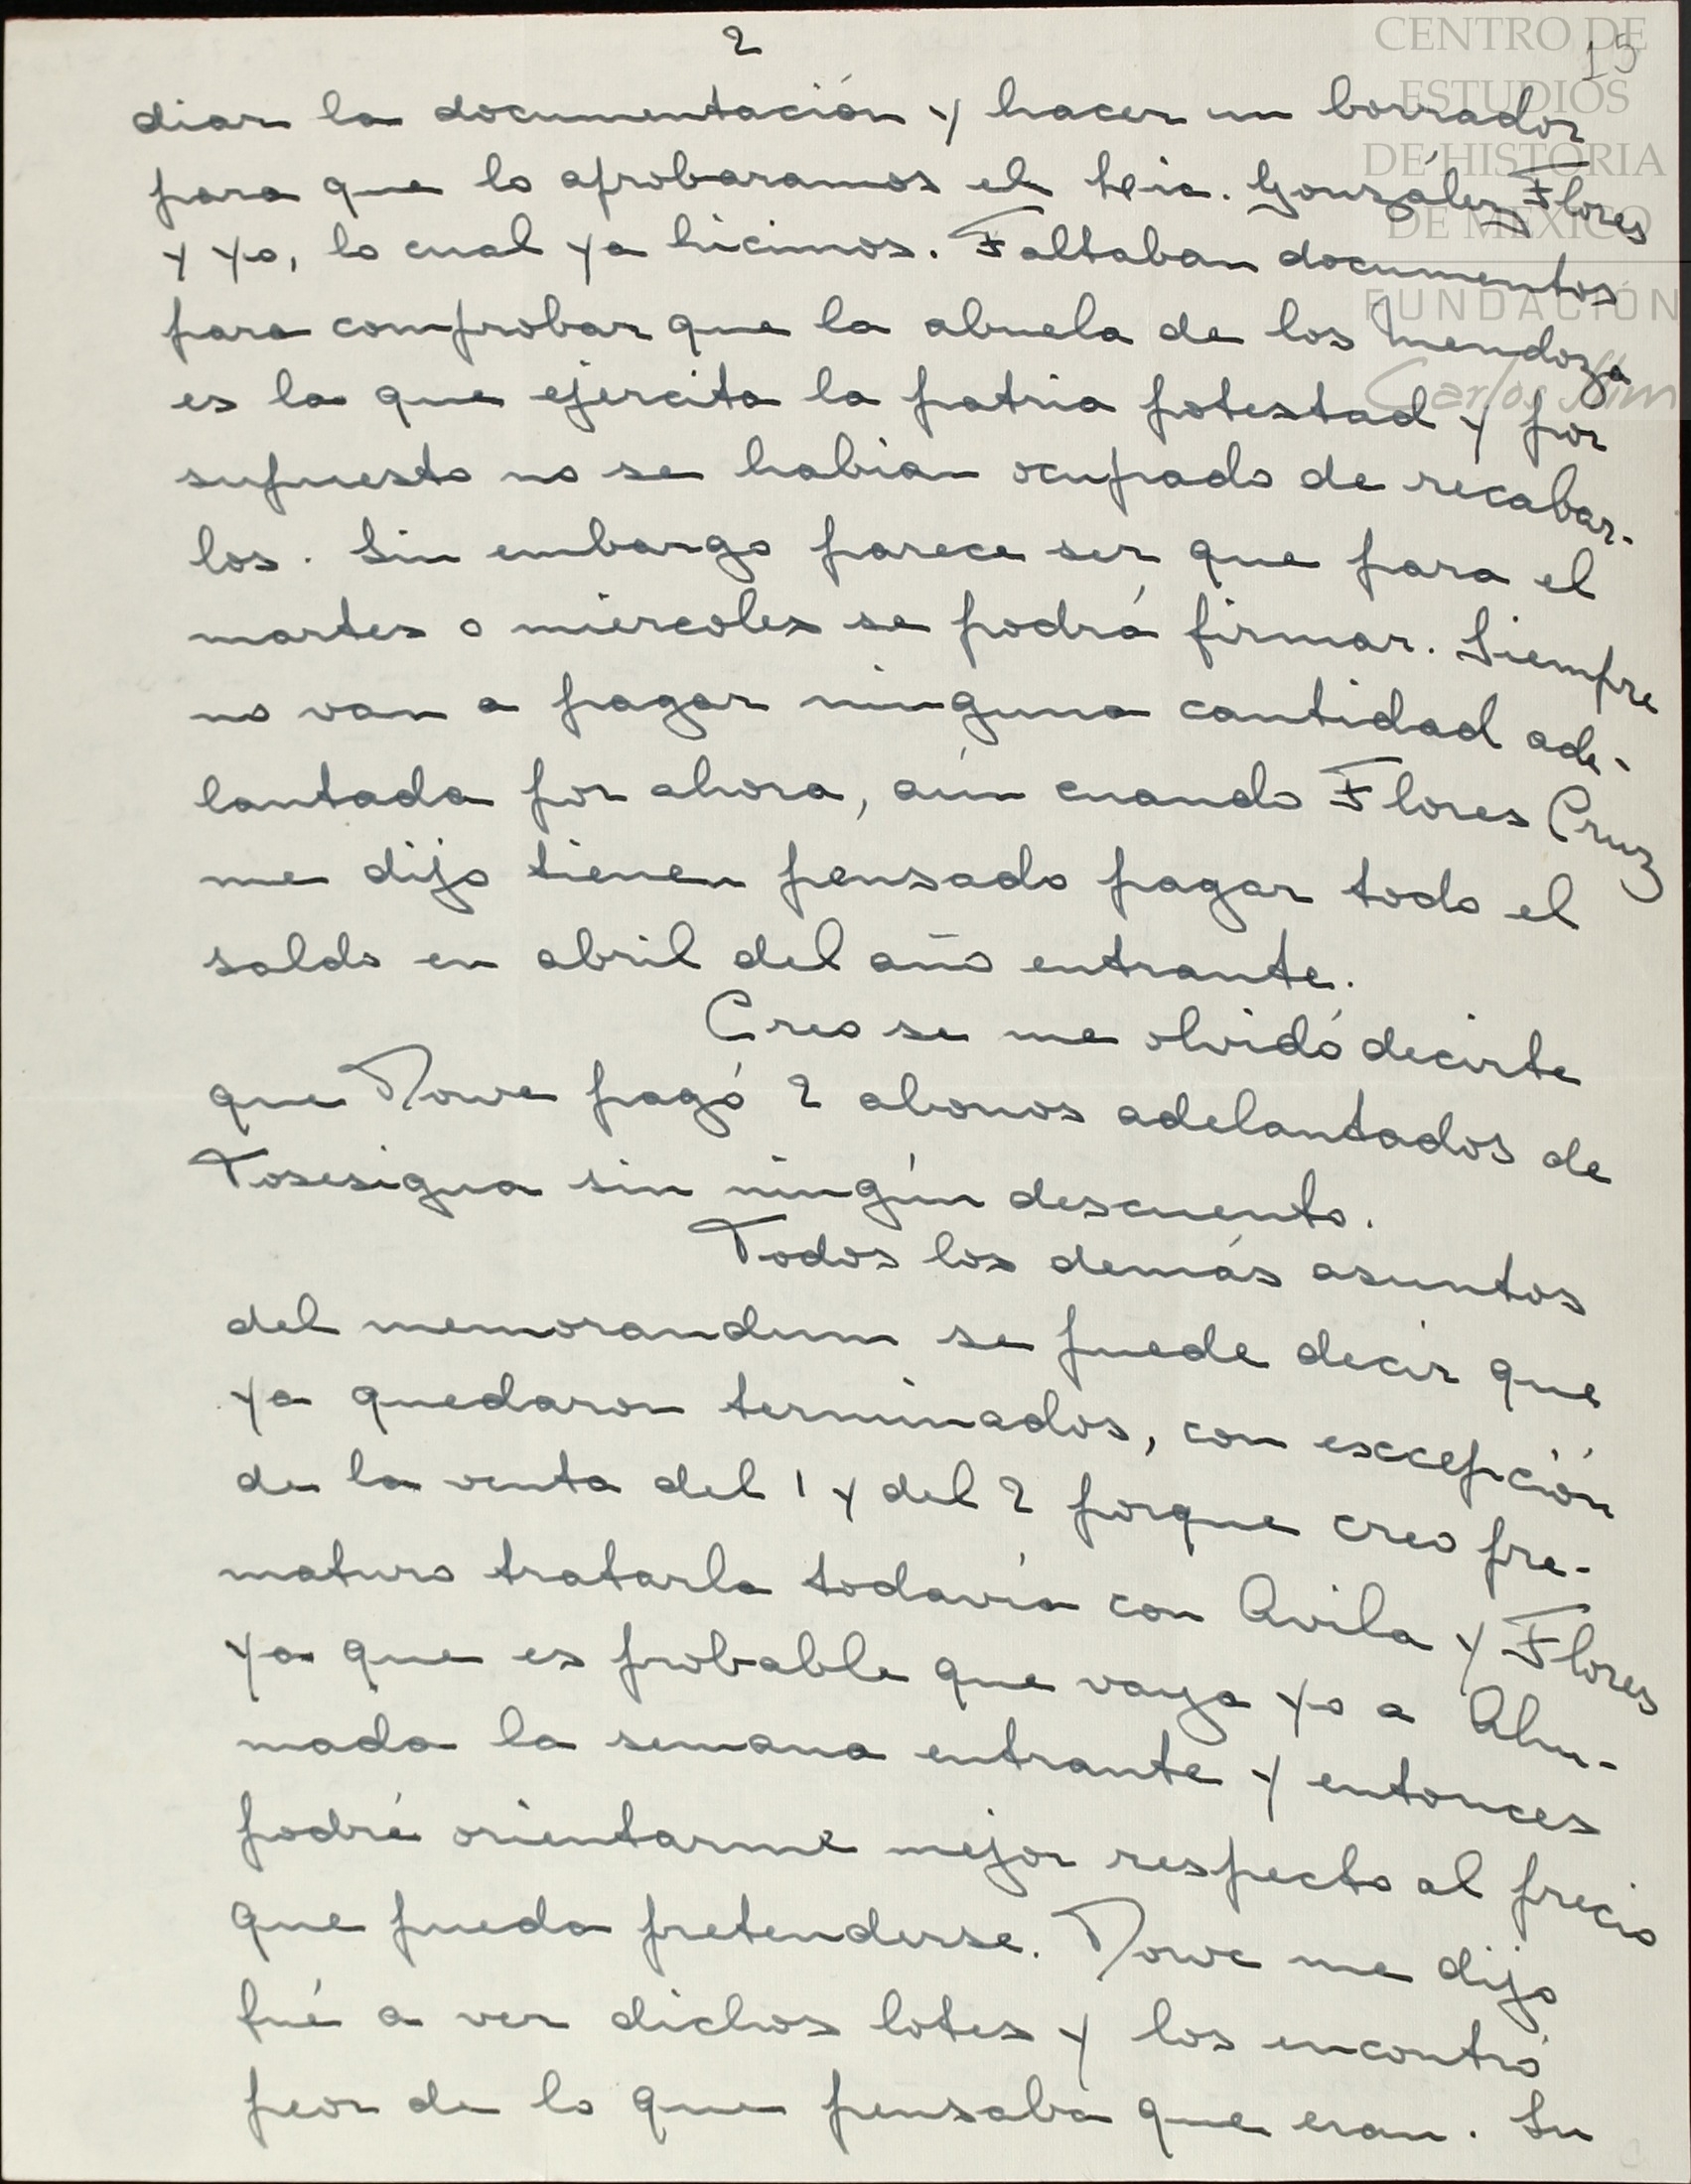 2
15
CENTRO DE
ESTUDIOS
DE HISTORIA
DE MEXICO
FUNDACIÓN
Carlos Slim
diar la documentación y hacer un borrador
para que lo aprobaramos el Lic. González Flores
y yo, lo cual ya hicimos. Faltaban documentos
para comprobar que la abuela de los Mendoza
es la que ejercita la patria potestad y por
supuesto no se habian ocupado de recabar-
los. Sin embargo parece ser que para el
martes o miercoles se podrá firmar. Siempre
no van a pagar ninguna cantidad ade-
lantada por ahora, aún cuando Flores Cruz
me dijo tienen pensado pagar todo el
saldo en abril del año entrante.
Creo se me olvidó decirte
que Dowe pagó 2 abonos adelantados de
Tosesigua sin ningún descuento.
Todos los demás asuntos
del memorandum se puede decir que
ya quedaron terminados, con exccepción
de la venta del 1 y del 2 porque creo pre-
maturo tratarla todavía con Avila y Flores
ya que es probable que vaya yo a Ahu-
mada la semana entrante y entonces
podré orientarme mejor respecto al precio
que pueda pretenderse. Dowe me dijo
fué a ver dichos lotes y los encontró
peor de lo que pensaba que eran. Su